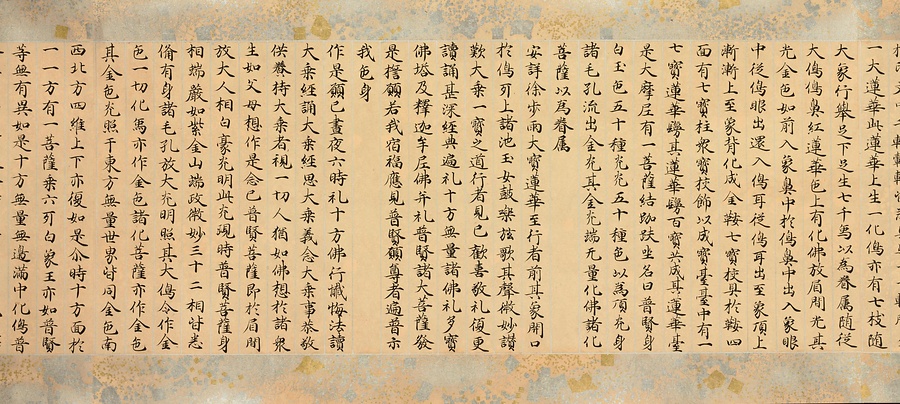 一大蓮華此蓮華上生一化象亦有七枝隨
大象行舉足下足生七千象以為眷属随從
大象象鼻紅蓮華色上有化佛放眉間光其
光金色如前入象鼻中於象鼻中出入象眼
中從象眼出還入象耳從象耳出至象頂上
漸漸上至象背化成金鞍七寶校具於鞍四
面有七寶柱衆寶校飾以成寶臺臺中有一
七寶蓮華鬚其蓮華鬚百寶共成其蓮華臺
是大摩尼有一菩薩結跏趺坐名曰普賢身
白玉色五十種光光五十種色以為頂光身
諸毛孔流出金光其金光端无量化佛諸化
菩薩以為眷属
安詳徐步雨大寶蓮華至行者前其象開口
於象牙上諸池玉女鼓樂弦歌其聲微妙讚
歎大乘一實之道行者見已歡喜敬礼復更
讀誦甚深經典遍礼十方無量諸佛礼多寶
佛塔及釋迦牟尼佛并礼普賢諸大菩薩發
是誓願若我宿福應見普賢願尊者遍吉示
我色身
作是願已晝夜六時礼十方佛行懺悔法讀
大乘經誦大乘經思大乘義念大乘事恭敬
供養持大乘者視一切人猶如佛想於諸衆
生如父母想作是念已普賢菩薩即於眉間
放大人相白豪光明此光現時普賢菩薩身
相端嚴如紫金山端政微妙三十二相皆悉
備有身諸毛孔放大光明照其大象令作金
色一切化象亦作金色諸化菩薩亦作金色
其金色光照于東方無量世界皆同金色南
西北方四維上下亦復如是尒時十方面於
一一方有一菩薩乘六牙白象王亦如普賢
等無有異如是十方無量無邊滿中化象普